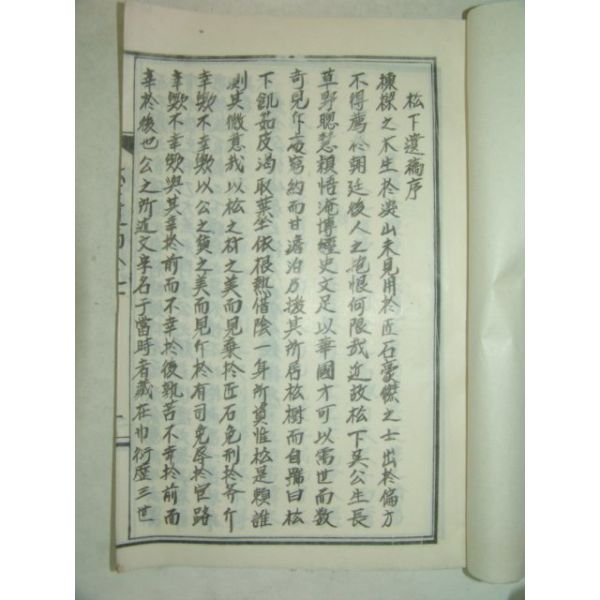 松下遺稿序
樑之木生於深山未見用於匠石豪傑之士出於偏方
不得薦於朝廷後人之抱恨何限哉近故松下吳公生長
草野聰慧穎悟淹博經史文足以華國才可以需世而數
奇見斥窮約而甘澹泊乃援其所居松樹而自號曰松
下飢茹皮渴取葉坐依根熱借陰一年所資惟松是賴誰
則其微意哉以松之材之美而見棄於匠石免刑於斧斤
幸歟不幸歟以公之質之美而見斥於有司免辱於宦路
幸歟不幸歟與其幸於前而不幸於後孰若不幸於前而
幸於後也公之所述文章名于當時者藏在巾衍歷三世